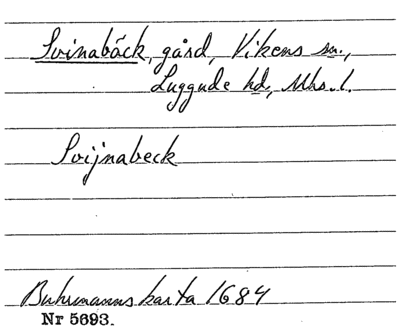 Svinabäck, gård, Vikens sn.,
Luggude hd., Mhs. l.
Svijnabeck
Buhrmanns karta 1684
Nr 5693.